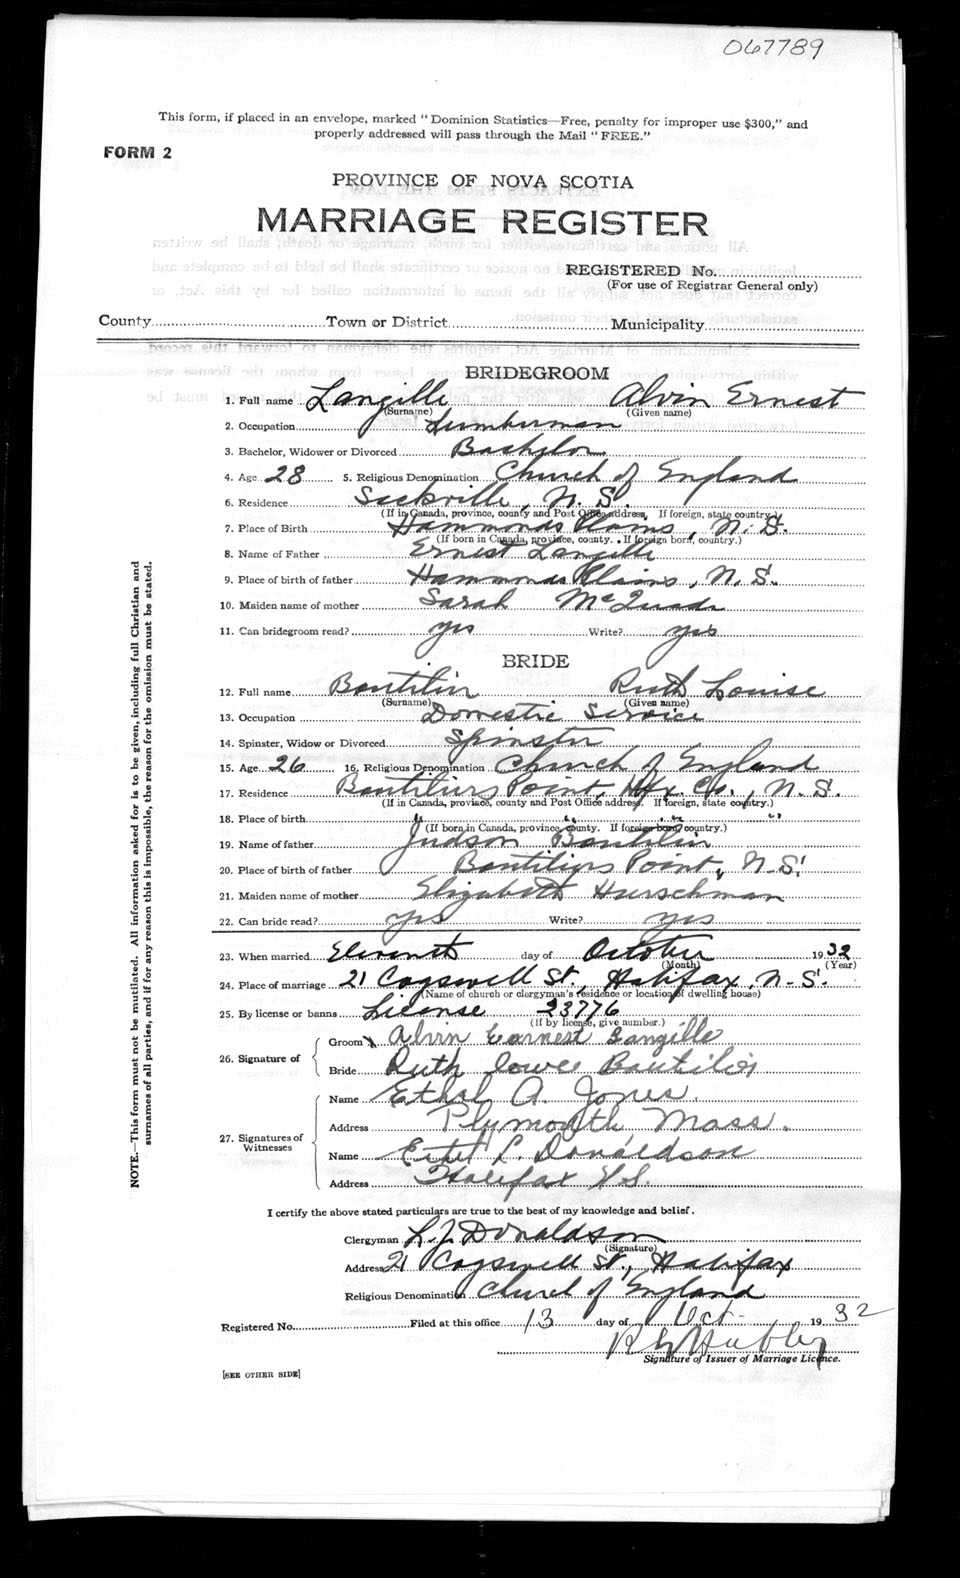 067789
This form, if placed in an envelope, marked "Dominion Statistics—Free, penalty for improper use $300," and
properly addressed will pass through the Mail "FREE."
FORM 2
PROVINCE OF NOVA SCOTIA
MARRIAGE REGISTER
REGISTERED No.
(For use of Registrar General only)
County Town or District Municipality
BRIDEGROOM
1. Full name Langille Alvin Ernest
(Surname) (Given name)
2. Occupation Lumberman
3. Bachelor, Widower or Divorced Bachelor
4. Age 28 5. Religious Denomination Church of England
6. Residence Sackville, N. S.
(If in Canada, province, county and Post Office address. If foreign, state country.)
7. Place of Birth Hammonds Plains, N. S.
(If born in Canada, province, county. If foreign born, country.)
8. Name of Father Ernest Langille
9. Place of birth of father Hammonds Plains, N. S.
10. Maiden name of mother Sarah McQuade
11. Can bridegroom read? yes Write? yes
BRIDE
12. Full name Boutilier Ruth Louise
(Surname) (Given name)
13. Occupation Domestic Service
14. Spinster, Widow or Divorced Spinster
15. Age 26 16. Religious Denomination Church of England
17. Residence Boutiliers Point, Hfx. Co., N. S.
(If in Canada, province, county and Post Office address. If foreign, state country.)
18. Place of birth " " " "
(If born in Canada, province county. If foreign born, country.)
19. Name of father Judson Boutilier
20. Place of birth of father Boutiliers Point, N. S.
21. Maiden name of mother Elizabeth Hurschman
22. Can bride read? yes Write? yes
23. When married Eleventh day of October 1932
(Month) (Year)
24. Place of marriage 21 Cogswell St., Halifax, N. S.
(Name of church or clergyman's residence or location of dwelling house)
25. By license or banns License 23776
(If by license, give number.)
26. Signature of Groom Alvin Earnest Langille
Bride Ruth Boutilier
27. Signatures of Witnesses Name Ethel A. Jones.
Address Plymouth, Mass.
Name L. Donaldson
Address Halifax N.S.
I certify the above stated particulars are true to the best of my knowledge and belief.
Clergyman L. J. Donaldson
(Signature)
Address 21 Cogswell St., Halifax
Religious Denomination Church of England
Registered No. Filed at this office 13 day of Oct. 1932
Hubley
Signature of Issuer of Marriage Licence.
[SEE OTHER SIDE]
NOTE.—This form must not be mutilated. All information asked for is to be given, including full Christian and
surnames of all parties, and if for any reason this is impossible, the reason for the omission must be stated.